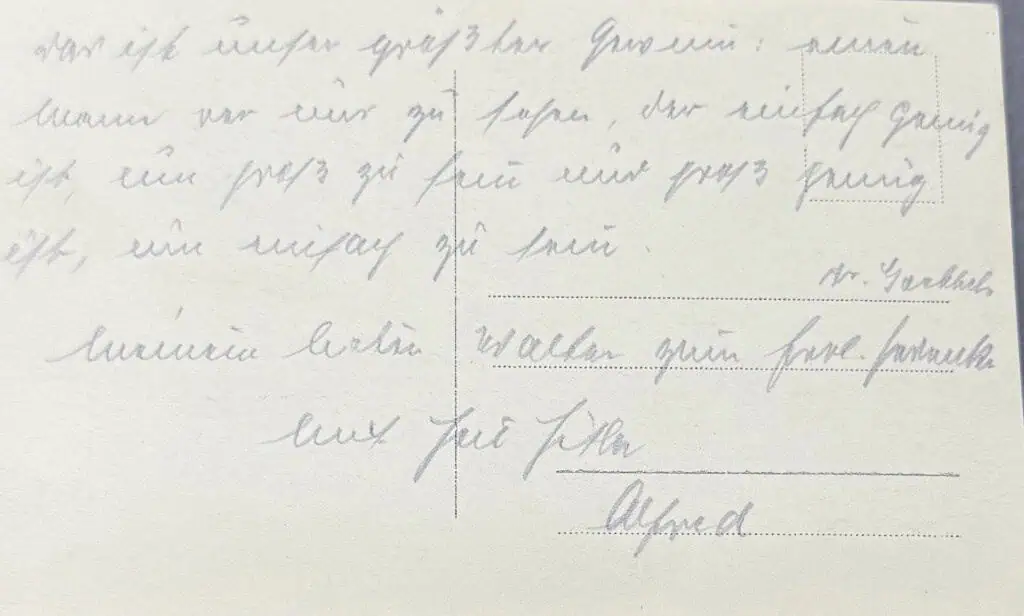 Das ist unser größter Gewinn: einen
Mann vor uns zu sehen, der einfach genug
ist, um groß zu sein und groß genug
ist, um einfach zu sein.
Dr. Goebbels
Meinem lieben Walter zum frdl. Gedenken
Mit Heil Hitler
Alfred